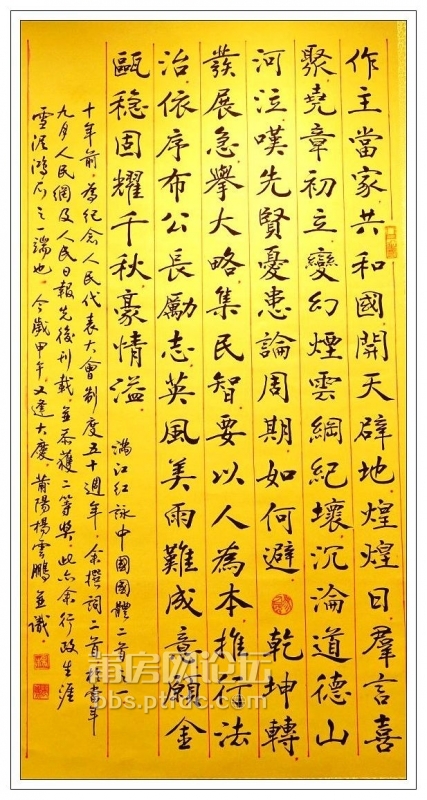 作主當家共和國開天辟地煌煌日羣言喜
聚堯章初立變幻煙雲綱紀壞沉淪道德山
河泣嘆先賢憂患論周期如何避 乾坤轉
發展急舉大略集民智要以人為本推行法
治依序布公長勵志英風美雨難成意願金
甌稳固耀千秋豪情溢 滿江紅詠中國國體二首之一
十年前為紀念人民代表大會制度五十週年余撰詞二首於當年
九月人民網及人民日報先後刊載並忝獲二等奖此亦余行政生涯
雪泥鴻爪之一端也今歲甲午又逢大慶莆陽楊雲鵬並識
莆房网论坛
bbs.ptfdc.com